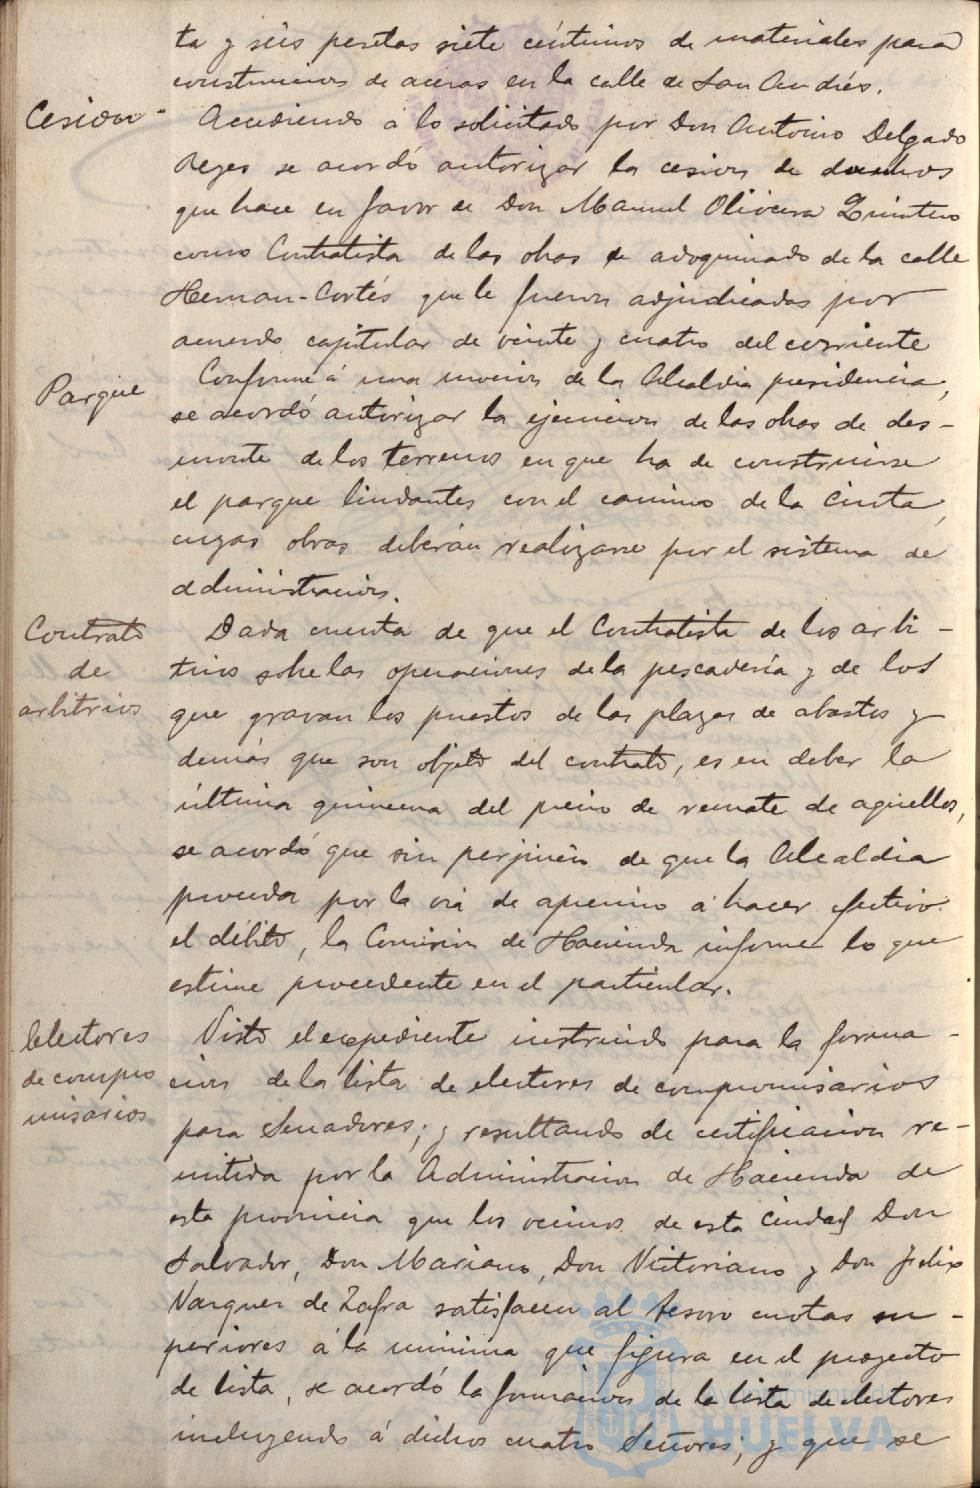 ta y séis pesetas siete céntimos de materiales para
construcción de aceras en la calle de San Andrés.
Cesion - Accediendo a lo solicitado por Don Antonio Delgado
Reyes se acordó autorizar la cesion de derechos
que hace en favor de Don Manuel Olivera Quintero
como Contratista de las obras de adoquinado de la calle
Hernan-Cortés que le fueron adjudicadas por
acuerdo capitular de veinte y cuatro del corriente
Parque Conforme á una mocion de la Alcaldia presidencia,
se acordó autorizar la ejecucion de las obras de des-
monte de los terrenos en que ha de construirse
el parque lindantes con el camino de la Cinta,
cuyas obras deberán realizarse por el sistema de
administracion.
Contrato Dada cuenta de que el Contratista de los arbi-
de trios sobre las operaciones de la pescadería y de los
arbitrios que gravan los puestos de las plazas de abastos y
demás que son objeto del contrato, es en deber la
última quincena del precio de remate de aquellos,
se acordó que sin perjuicio de que la Alcaldia
proceda por la via de apremio a hacer efectivo
el débito, la Comision de Hacienda informe lo que
estime procedente en el particular.
Electores Visto el expediente instruido para la forma-
de compro cion de la lista de electores de compromisarios
misarios para Senadores; y resultando de certificacion re-
mitida por la Administracion de Hacienda de
esta provincia que los vecinos de esta Ciudad Don
Salvador, Don Mariano, Don Victoriano y Don Felix
Vazquez de Zafra satisfacen al tesoro cuotas su-
periores á la minima que figura en el proyecto
de lista, se acordó la formacion de la lista de electores
incluyendo á dichos cuatro Señores; y que se
Ayuntamiento de
HUELVA